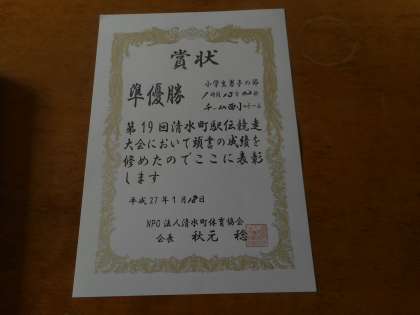 賞状
小学生男子の部
準優勝
第19回清水町駅伝競走
大会において頭書の成績を
修めたのでここに表彰
します
平成27年1月18日
NPO法人清水町体育協会
会長 秋元 稔